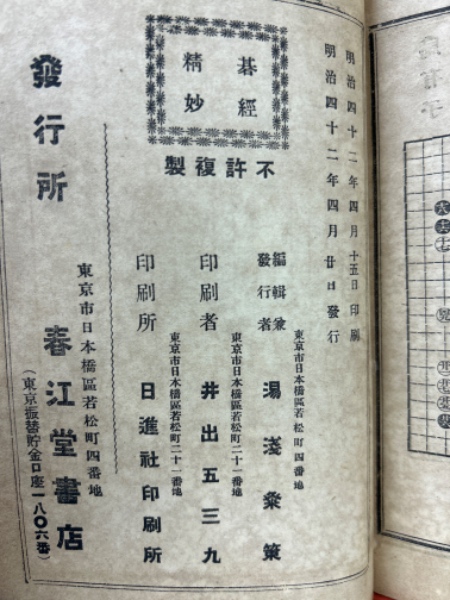 明治四十二年四月十五日印刷
明治四十二年四月廿日發行
碁經
精妙
不許複製
東京市日本橋區若松町四番地
編輯兼
發行者
湯淺粂策
東京市日本橋區若松町二十一番地
印刷者
井出五三九
東京市日本橋區若松町二十一番地
印刷所
日進社印刷所
發行所
東京市日本橋區若松町四番地
春江堂書店
(東京振替貯金口座一八〇六番)